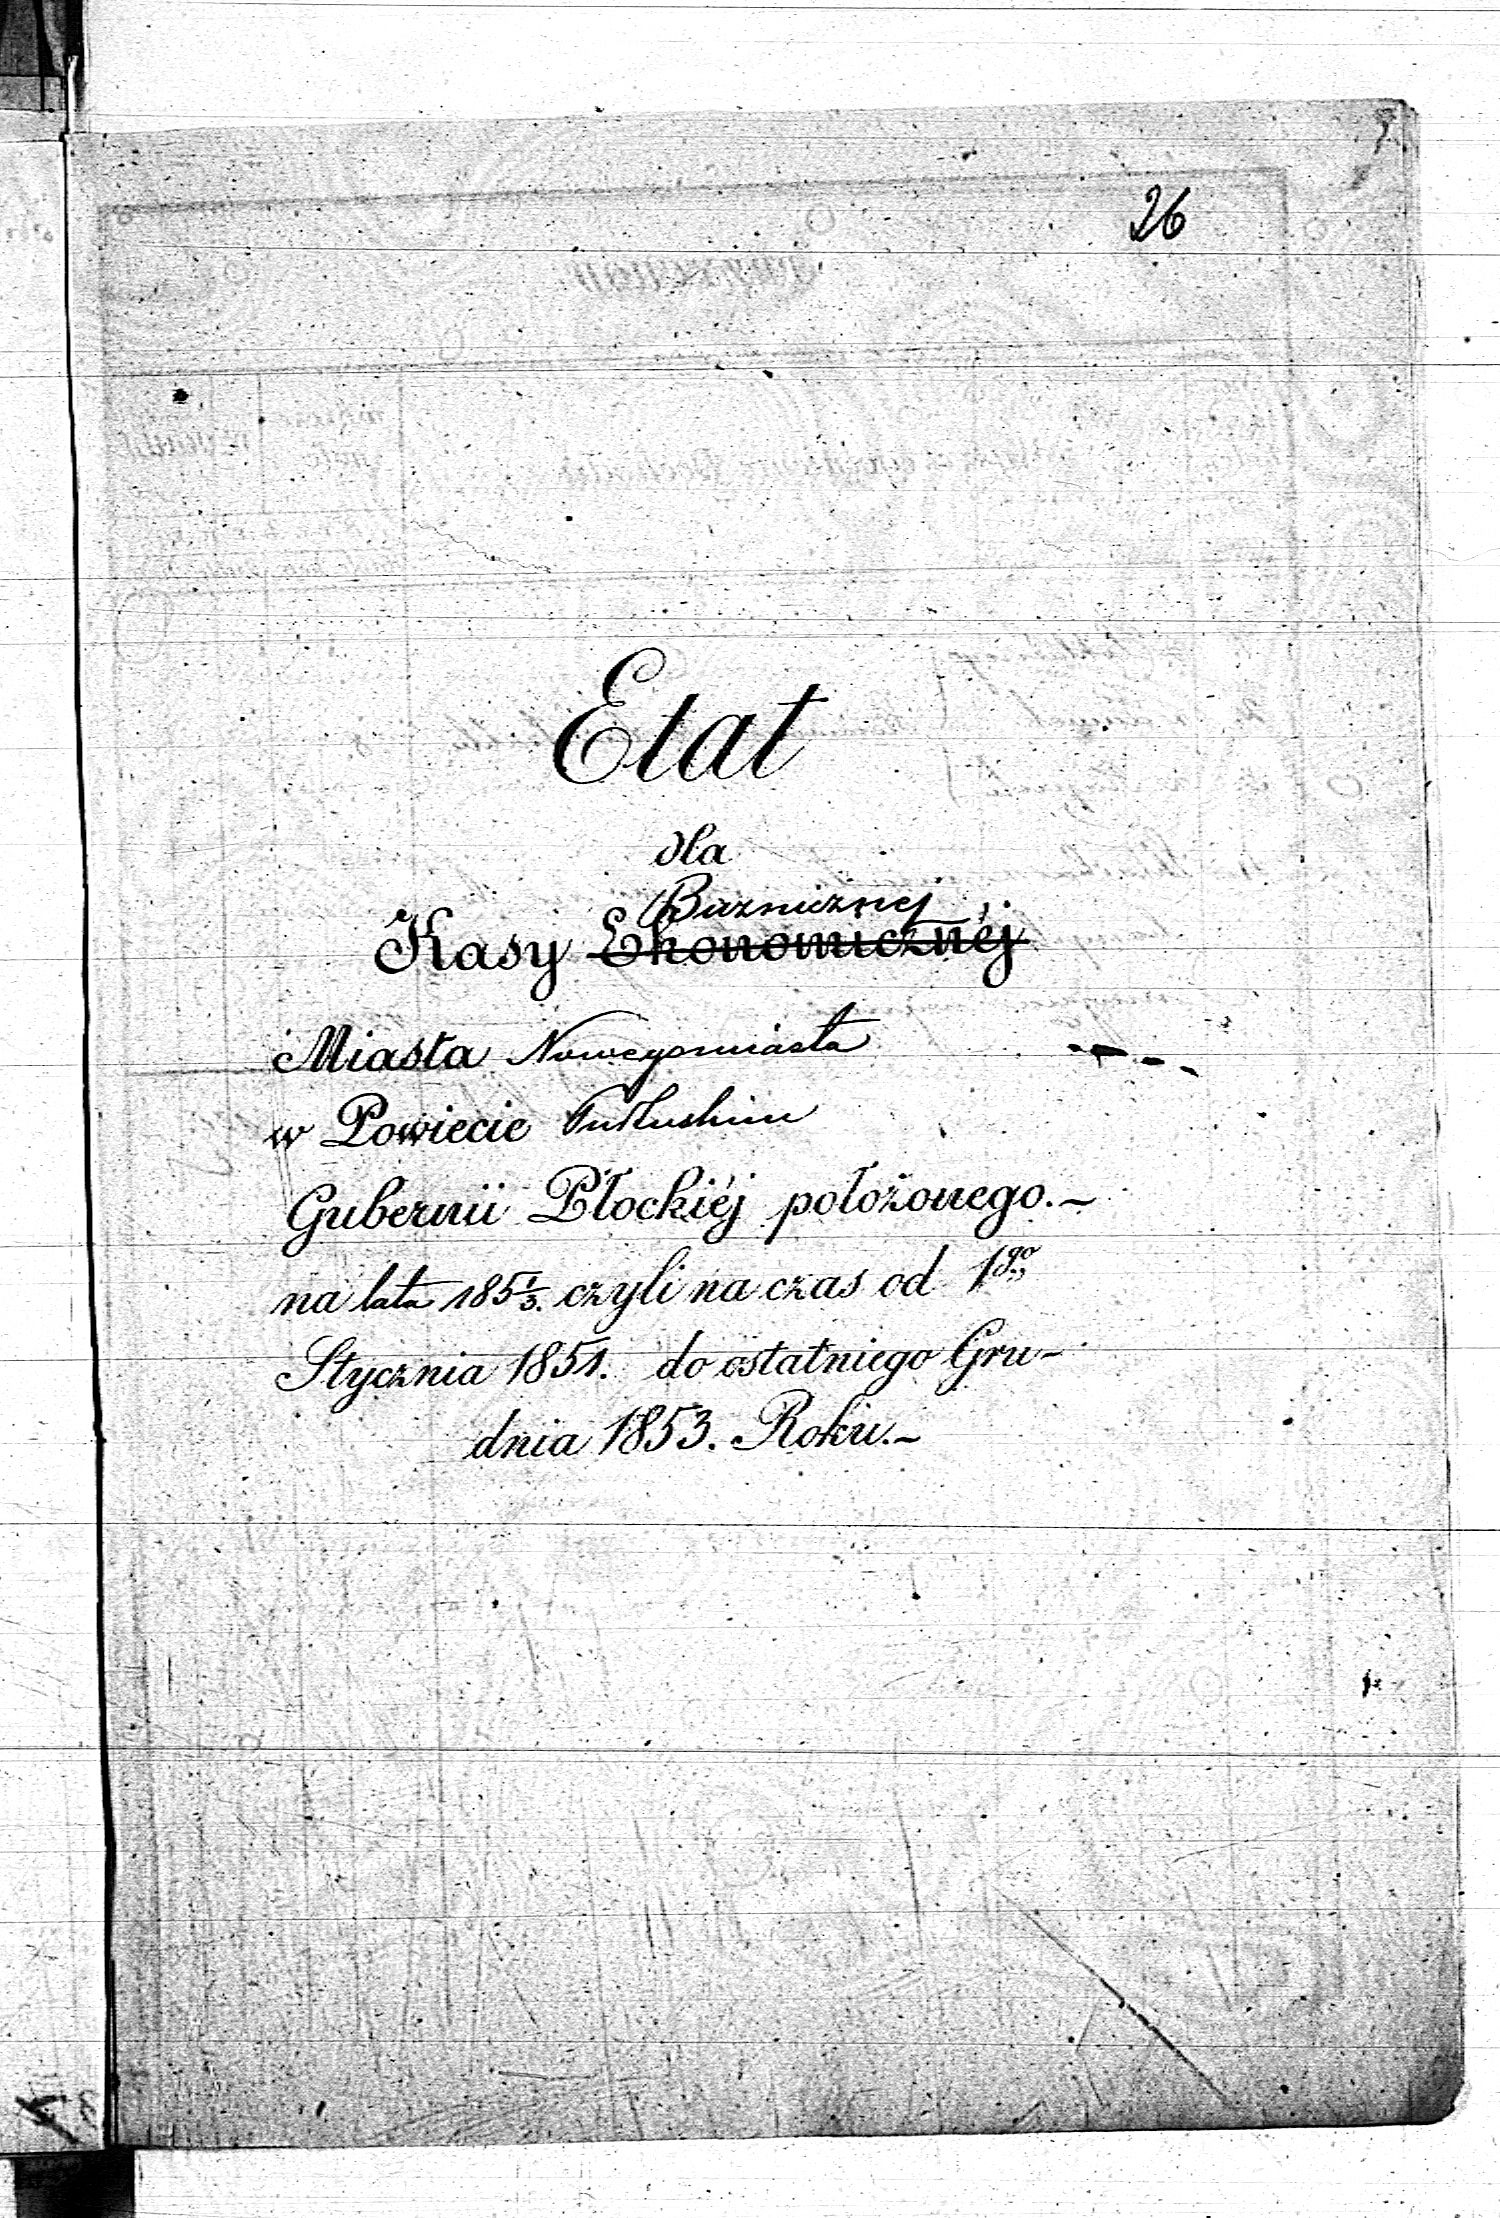 26
Etat
dla
Bużnicznej
Kasy Ekonomicznéj
Miasta Nowegomiasta
w Powiecie Pułtuskim
Gubernii Płockiéj położonego.~
na lata 185 1/3. czyli na czas od 1go
Stycznia 1851. do ostatniego Gru-
dnia 1853. Roku.~